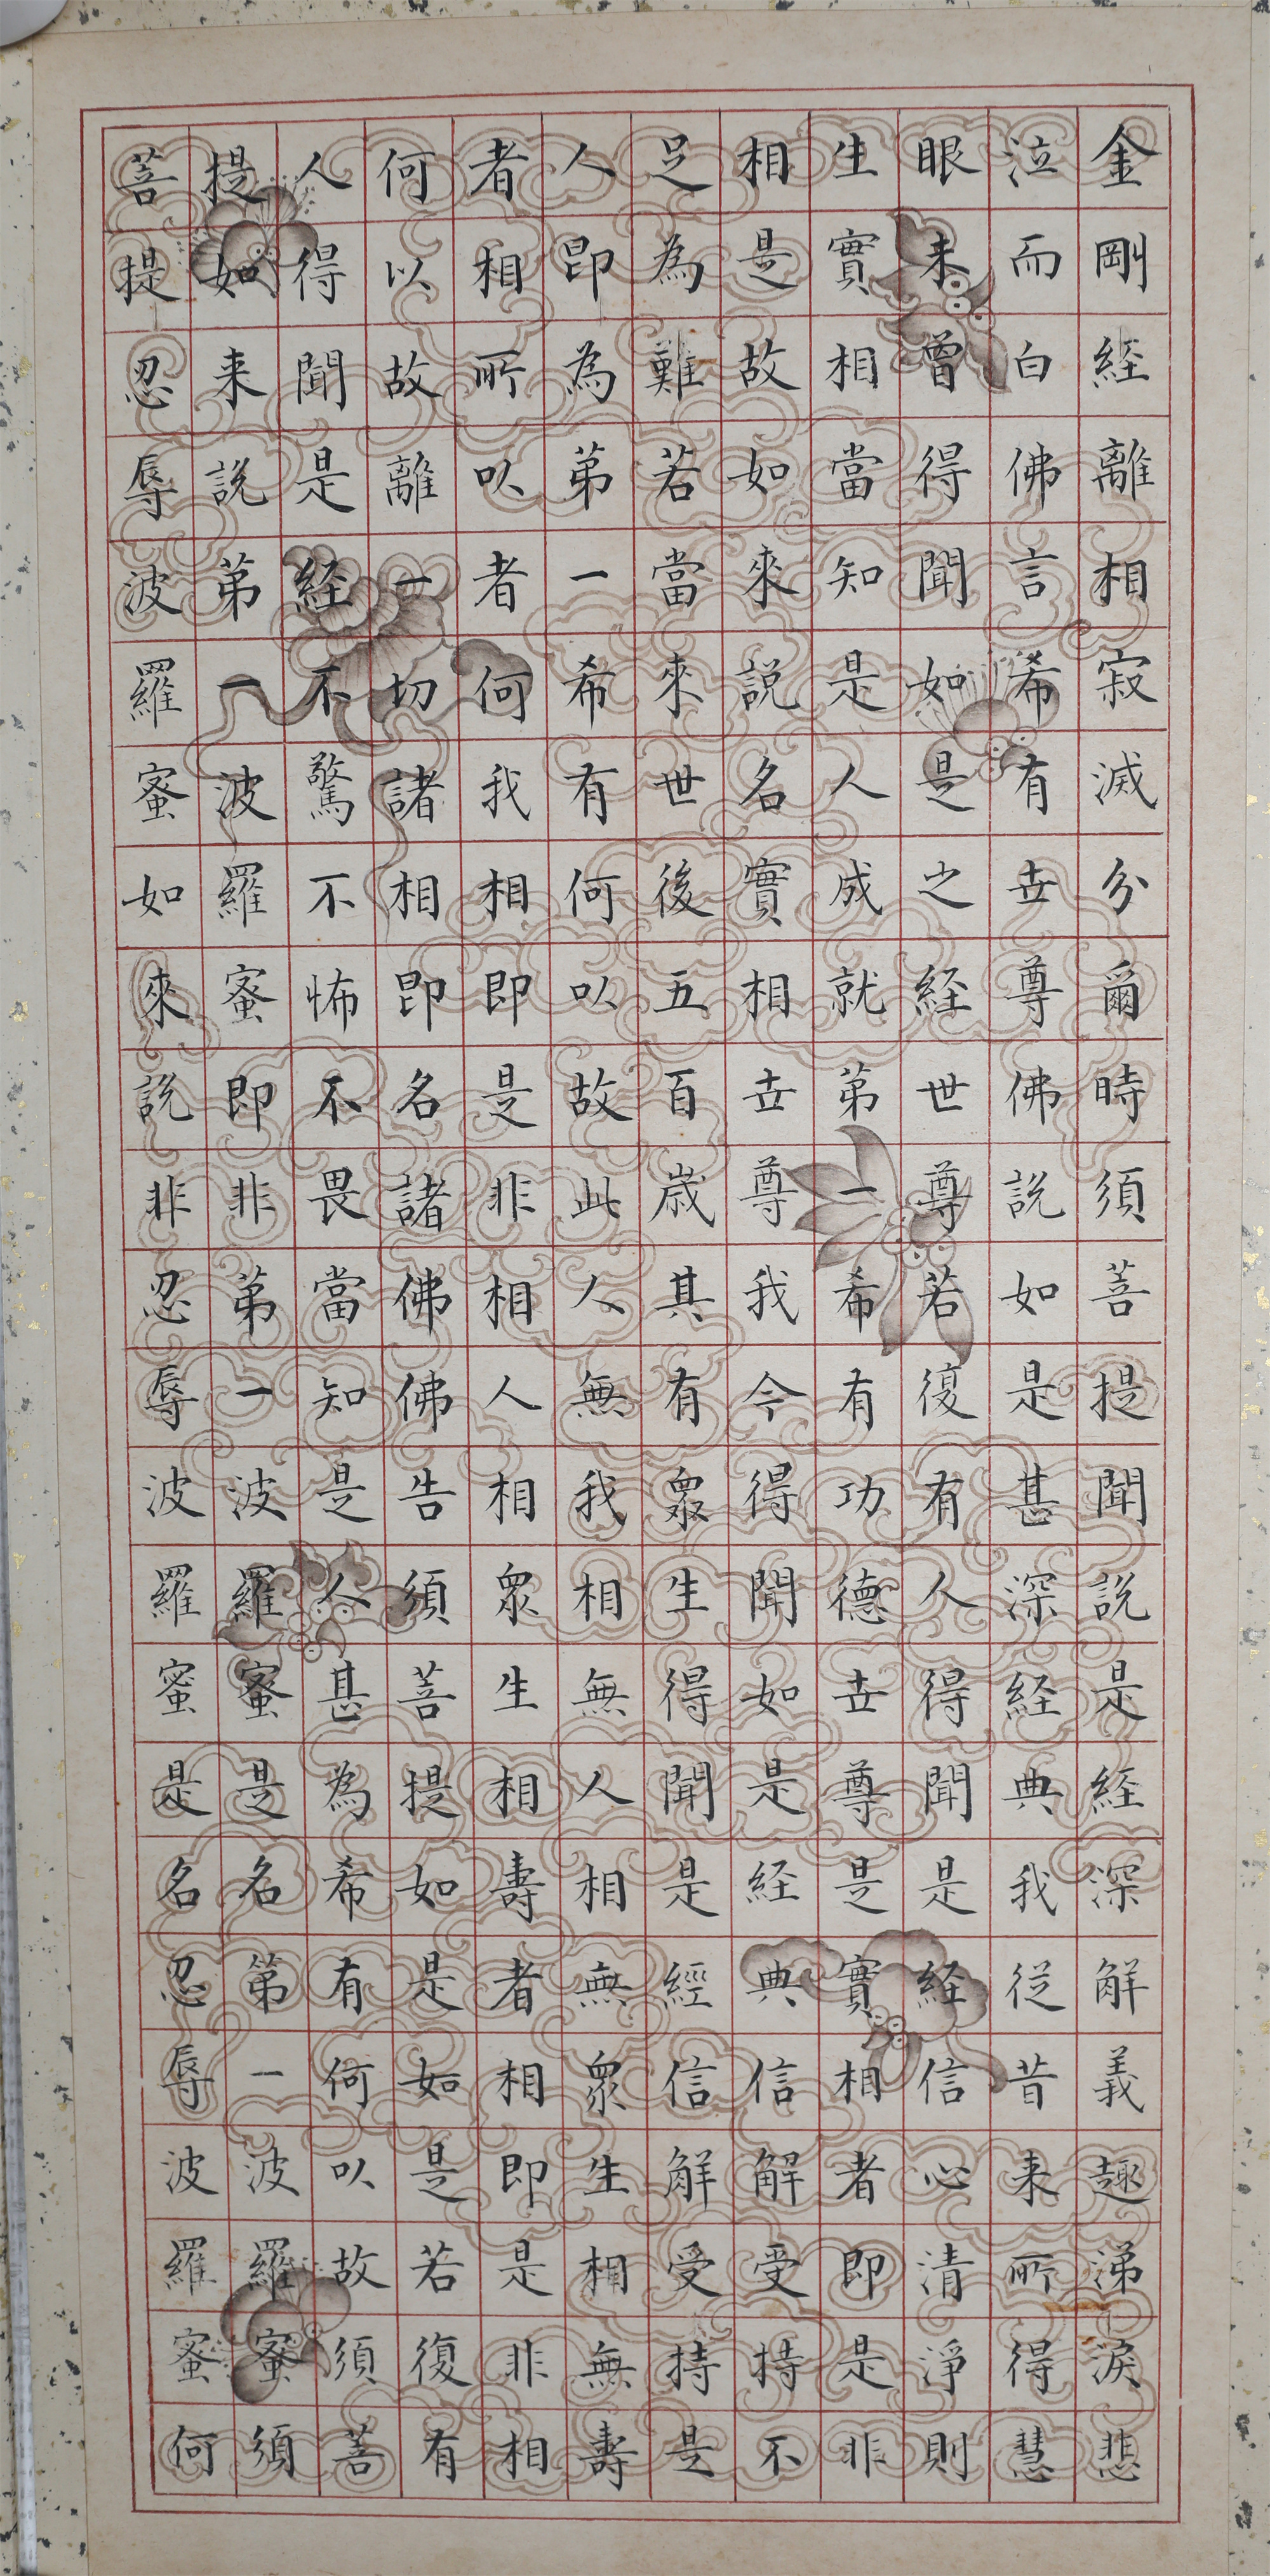 金剛経離相寂滅分爾時須菩提聞說是経深解義趣涕淚悲
泣而白佛言希有世尊佛說如是甚深経典我從昔来所得慧
眼未曾得聞如是之経世尊若復有人得聞是経信心清淨則
生實相當知是人成就第一希有功德世尊是實相者即是非
相是故如來說名實相世尊我今得聞如是経典信解受持不
足為難若當來世後五百歲其有眾生得聞是經信解受持是
人即為第一希有何以故此人無我相無人相無眾生相無壽
者相所以者何我相即是非相人相眾生相壽者相即是非相
何以故離一切諸相即名諸佛佛告須菩提如是如是若復有
人得聞是経不驚不怖不畏當知是人甚為希有何以故須菩
提如来說第一波羅蜜即非第一波羅蜜是名第一波羅蜜須
菩提忍辱波羅蜜如來說非忍辱波羅蜜是名忍辱波羅蜜何